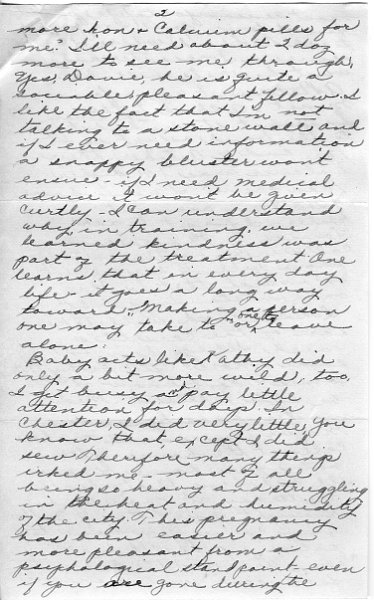 2
more Iron + Calcium pills for
me? I'll need about 2 doz
more to see me through.
Yes, Davie, he is quite a
sociable pleasant fellow. I
like the fact that I'm not
talking to a stone wall and
if I ever need information
a snappy bluster wont
ensue - if I need medical
advice it won't be given
curtly - I can understand
why in training, we
learned kindness was
part of the treatment One
learns that in every day
life - it goes a long way
toward "Making a person
one may take to or one to leave
alone.
Baby acts like Kathy did
only a bit more wild, too,
I get busy and pay little
attention for days. In
Chester, I did very little, you
know that, except I did
sew Therefore many things
irked me - most of all
being so heavy and struggling
in the heat and humidity
of the city. This pregnancy
has been easier and
more pleasant from a
psyphological standpoint - even
if you are gone during the